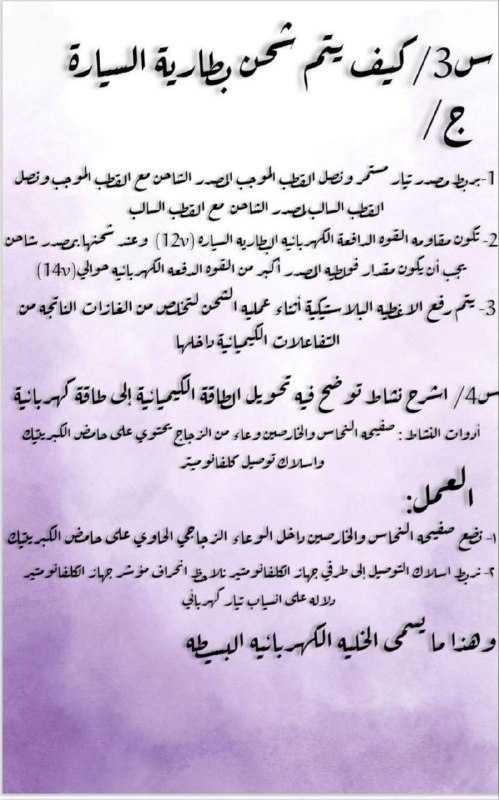 س3/ كيف يتم شحن بطارية السيارة
ج /
1-بربط مصدر تيار مستمر ونصل القطب الموجب لمصدر الشاحن مع القطب الموجب ونصل
القطب السالب لمصدر الشاحن مع القطب السالب
2- تكون مقاومه القوه الدافعة الكهربائيه البطاريه السياره (12v) وعند شحنها بمصدر شاحن
يجب أن يكون مقدار فولطيه المصدر أكبر من القوه الدفعه الكهربائيه حوالي(14v)
3- يتم رفع الاغطيه البلاستيكية أثناء عمليه الشحن لتخلص من الغازات الناتجه من
التفاعلات الكيميائية داخلها
س4/ اشرح نشاط توضح فيه تحويل الطاقة الكيميائية إلى طاقة كهربائية
أدوات النشاط : صفيحه النحاس والخارصين وعاء من الزجاج يحتوي على حامض الكبريتيك
واسلاك توصيل كلفانوميتر
العمل:
١- نضع صفيحه النحاس والخارصين داخل الوعاء الزجاجي الحاوي على حامض الكبريتيك
٢- نربط اسلاك التوصيل إلى طرفي جهاز الكلفانوميتر نلاحظ انحراف مؤشر جهاز الكلفانوميتر
دلاله على انسياب تيار كهربائي
وهذا ما يسمى الخليه الكهربائيه البسيطه